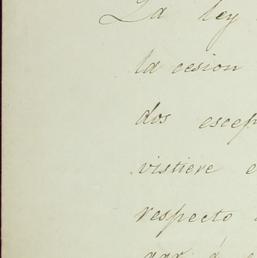 La ley
la cesion
dos escep
vistiere e
respecto
gar á